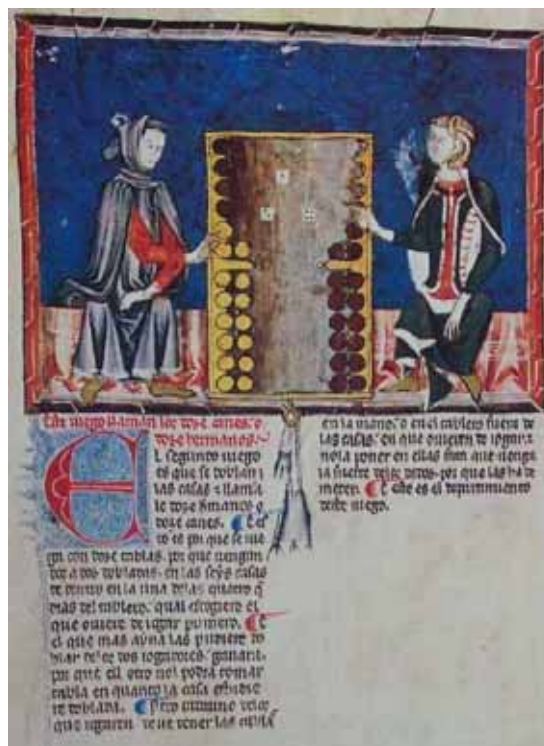 Este juego llaman los doze canes. o
doze hermanos.
El segundo iuego
es que se doblan
las casas z llaman
le doze hermanos o
doze canes. E es
to es por que se iue
ga con doze tablas. por que uengan
dos a dos dobladas. en las seys casas
de dentro en la una de las quatro
mas del tablero. qual escogiere el
que ouiere de iogar primero. E
el que mas ayna las pudiere do
blar de los dos iogadores. ganara.
por que ell otro nol podra tomar
tabla en quanto la casa estudiere
doblada.
que iiguren
en la mano. o en el tablero fuera de
las casas. en que ouieren de iogar.
nola poner en ellas fata que uenga
la suerte delos dados. por que las ha de
meter. E este es el departimiento
deste iuego.